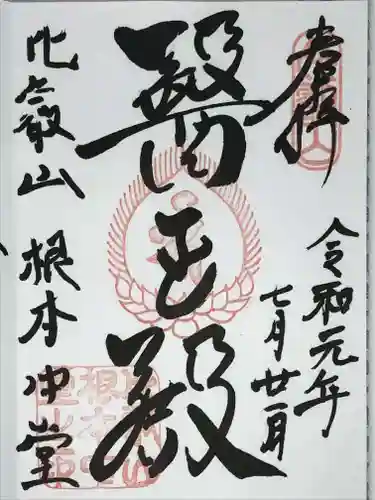 奉拝
令和元年
七月廿一日
醫王殿
比叡山 根本中堂